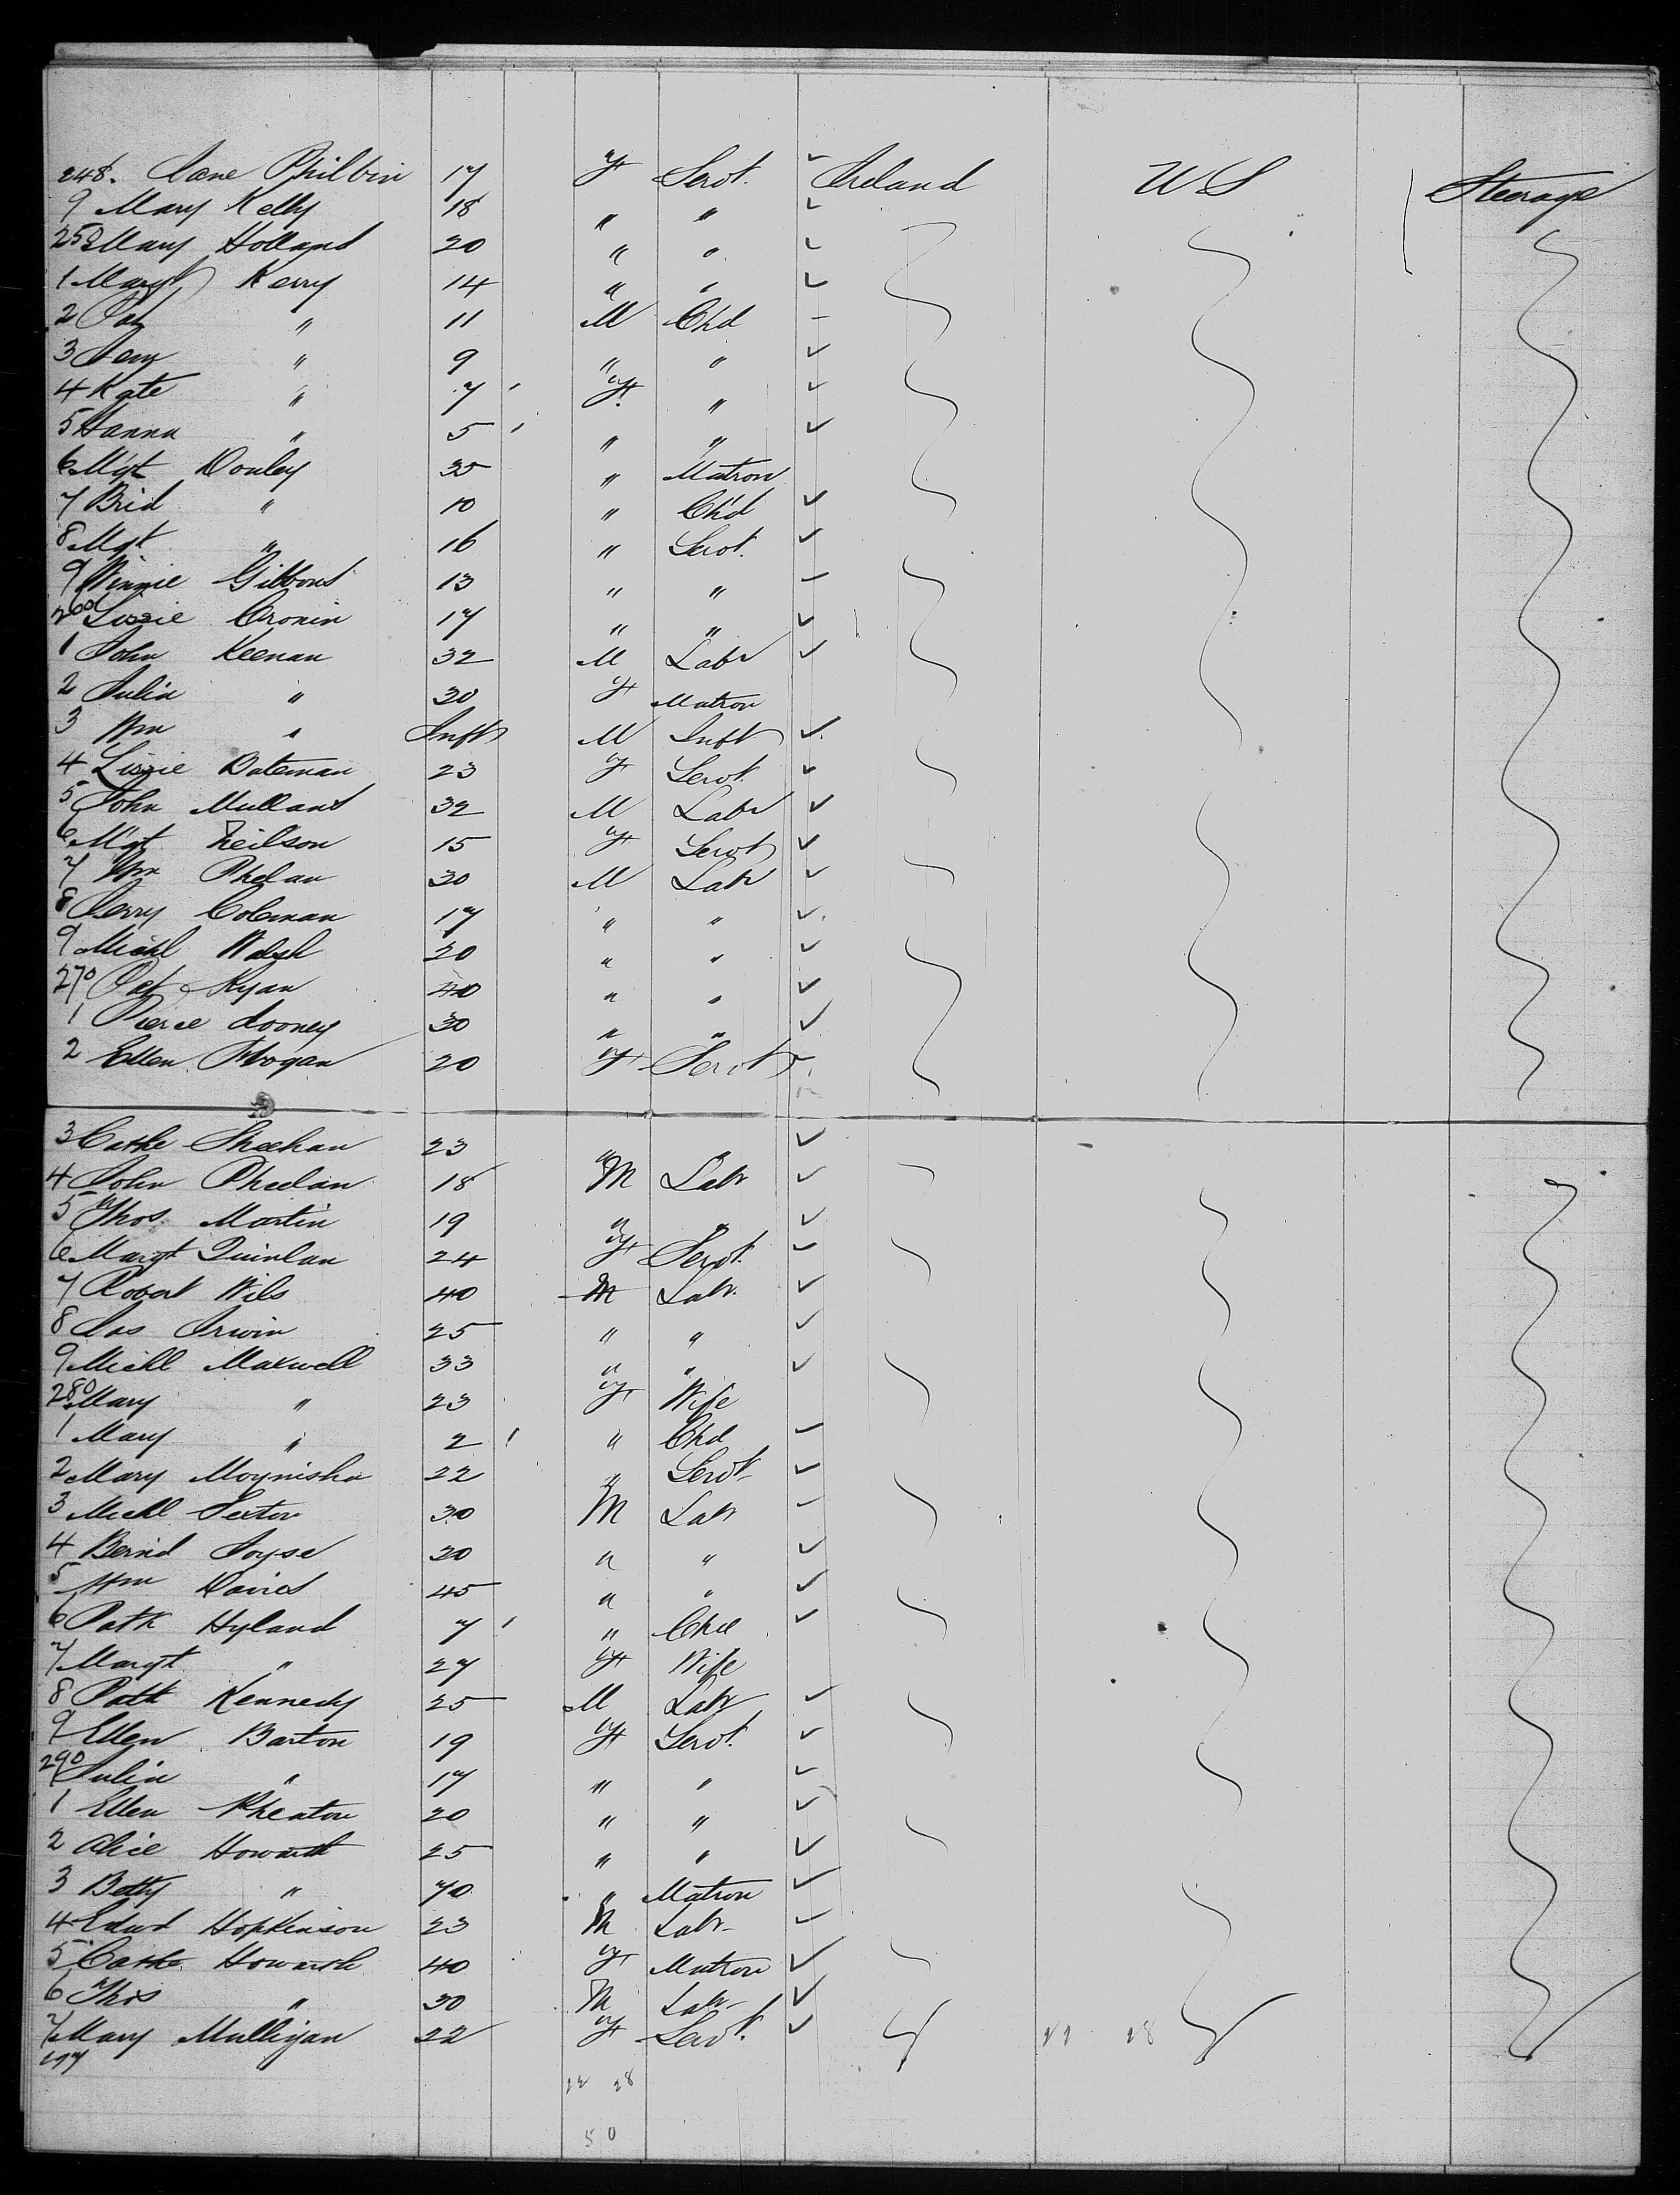 248. Jane Philbin 17 F Servt. ✓ Ireland U S Steerage
9 Mary Kelly 18 " " ✓
250 Mary Holland 20 " " ✓
1 Margt Kerry 14 " " ✓
2 Pat " 11 M Chd -
3 Jerry " 9 " " ✓
4 Kate " 7 ' F. " ✓
5 Hanna " 5 ' " " ✓
6 Mgt Donley 35 " Matron
7 Brid " 10 " Chd ✓
8 Mgt " 16 " Servt. ✓
9 Winnie Gibbons 13 " " ✓
260 Lizzie Cronin 17 " " ✓
1 John Keenan 32 M Labr ✓
2 Julia " 30 F Matron
3 Wm " Inft M Inft ✓
4 Lizzie Bateman 23 F Servt. ✓
5 John Mullans 32 M Labr ✓
6 Mgt Neilson 15 F Servt ✓
7 Wm Phelan 30 M Labr ✓
8 Jerry Coleman 17 " " ✓
9 Michl Walsh 20 " " ✓
270 Pat Ryan 40 " " ✓
1 Pierce Looney 30 " " ✓
2 Ellen Hogan 20 F Servt ✓
3 Cathe Sheehan 23 " " ✓
4 John Pheelan 18 M Labr ✓
5 Thos. Martin 19 " " ✓
6 Margt Quinlan 24 F Servt. ✓
7 Robert Wils 40 M Labr. ✓
8 Jas Irwin 25 " " ✓
9 Michl Maxwell 33 " " ✓
280 Mary " 23 F Wife
1 Mary " 2 ' " Chd ✓
2 Mary Moynisha 22 " Servt ✓
3 Michl Sexton 30 M Labr ✓
4 Bernd Joyse 30 " " ✓
5 Wm Davies 45 " " ✓
6 Patk Hyland 7 ' " Chd ✓
7 Margt " 27 F Wife
8 Patk Kennedy 25 M Labr ✓
9 Ellen Barton 19 F Servt. ✓
290 Julia " 17 " " ✓
1 Ellen Wheaton 20 " " ✓
2 Alice Howarth 25 " " ✓
3 Betty " 70 " Matron ✓
4 Edwd Hopkinson 23 M Labr ✓
5 Cathe Howarth 40 F Matron ✓
6 Thos " 30 M Labr ✓
7 Mary Mulligan 22 F Servt. ✓ 22 28
197
22 28
50